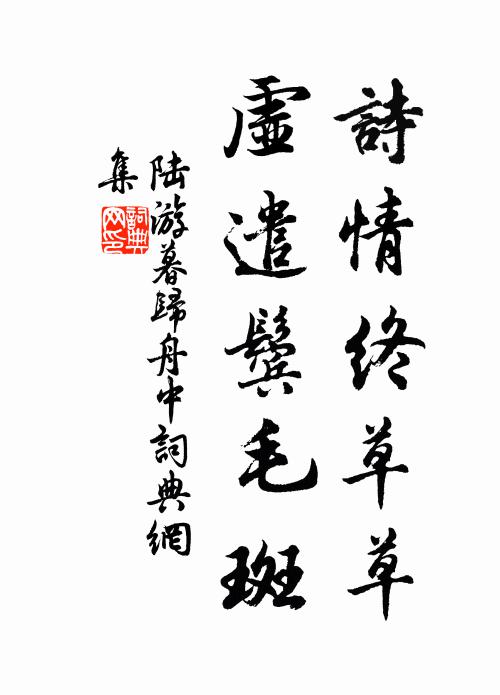 詩情終草草
虛遣鬢毛斑
陸游暮歸舟中詞典網
集
詞典
网印